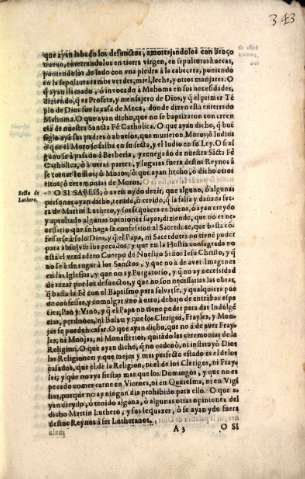 343
que ayan lauado los defunctos, amortajandolos con lienço
nueuo, enterrandolos en tierra virgen, en sepulturas huecas,
poniendolos de lado con vna piedra a la cabecera, poniendo
en la sepultura ramos verdes, miel, leche, y otros manjares. O
q̃ ayan llamado, o inuocado a Mahoma en sus necessidades,
diziendo, q̃ es Profeta, y mensajero de Dios, y q̃ el primer Tẽ
plo de Dios fue la casa de Meca, donde dizen està enterrado
Mahoma. O que ayan dicho, que no se baptizaron con creen
cia de nuestra Santa Fè Catholica. O que ayan dicho, q̃ buẽ
siglo ayã sus padres o abuelos, que murieron Moros, o Iudios
O que el Moro se salua en su secta, y el Iudio en su Ley. O si al
guno se à passado a Berberia, y renegado de nuestra Santa Fè
Catholica, o à otras partes, y lugares fuera destos Reynos à
se tornar Iudios, o Moros, o que ayan hecho, o dicho otros
ritos, o ceremonias de Moros.
Secta de
Luthero.
O SI SABEIS, o aueis oydo dezir, que alguno, o algunas
personas, ayan dicho, tenido, o creido, q̃ la falsa y dañada sec
ta de Martin Luthero, y sus sequazes es buena, o ayan creydo
y aprobado algunas opiniones suyas, diziendo, que no es ne-
cessario que se haga la confession al Sacerdote, que basta cõ
fessarse à solo Dios, y q̃ el Papa, ni Sacerdotes no tienen poder
para absoluer los pecados: y que en la Hostia consagrada no
està el verdadero Cuerpo de Nuestro Señor Iesu Christo, y q̃
no se à de rogar a los Sanctos, y que no à de auer Imagenes
en las Iglesias, y que no ay Purgatorio, y que no ay necessidad
de rezar por los defunctos, y que no son necessarias las obras,
q̃ basta la Fè con el Baptismo para saluarse, y qualquiera pue
de confessar, y comulgar vno a otro, debaxo de entrambas especies,
Pan, y Vino, y q̃ el Papa no tiene poder para dar Indulgẽ
cias, perdones, ni Bulas, y que los Clerigos, Frayles, y Mon-
jas se pueden casar. O que ayan dicho, que no à de auer Fray-
les, ni Monjas, ni Monasterios, quitando las ceremonias de la
Religion. O que ayan dicho, q̃ no ordenò, ni instituyò Dios
las Religiones, y que mejor y mas perfecto estado es el de los
casados, que el de la Religion, ni el de los Clerigos, ni Fray-
les, y que no aya fiestas mas que los Domingos, y que no es
pecado comer carne en Viernes, ni en Quaresma, ni en Vigi
lias, porque no ay ningun dia prohibido para ello. O que a-
yan tenido, o creido alguna, o algunas otras opiniones del
dicho Martin Luthero, y sus sequazes, o se ayan ydo fuera
destos Reynos à ser Lutheranos.
A 3
O SI